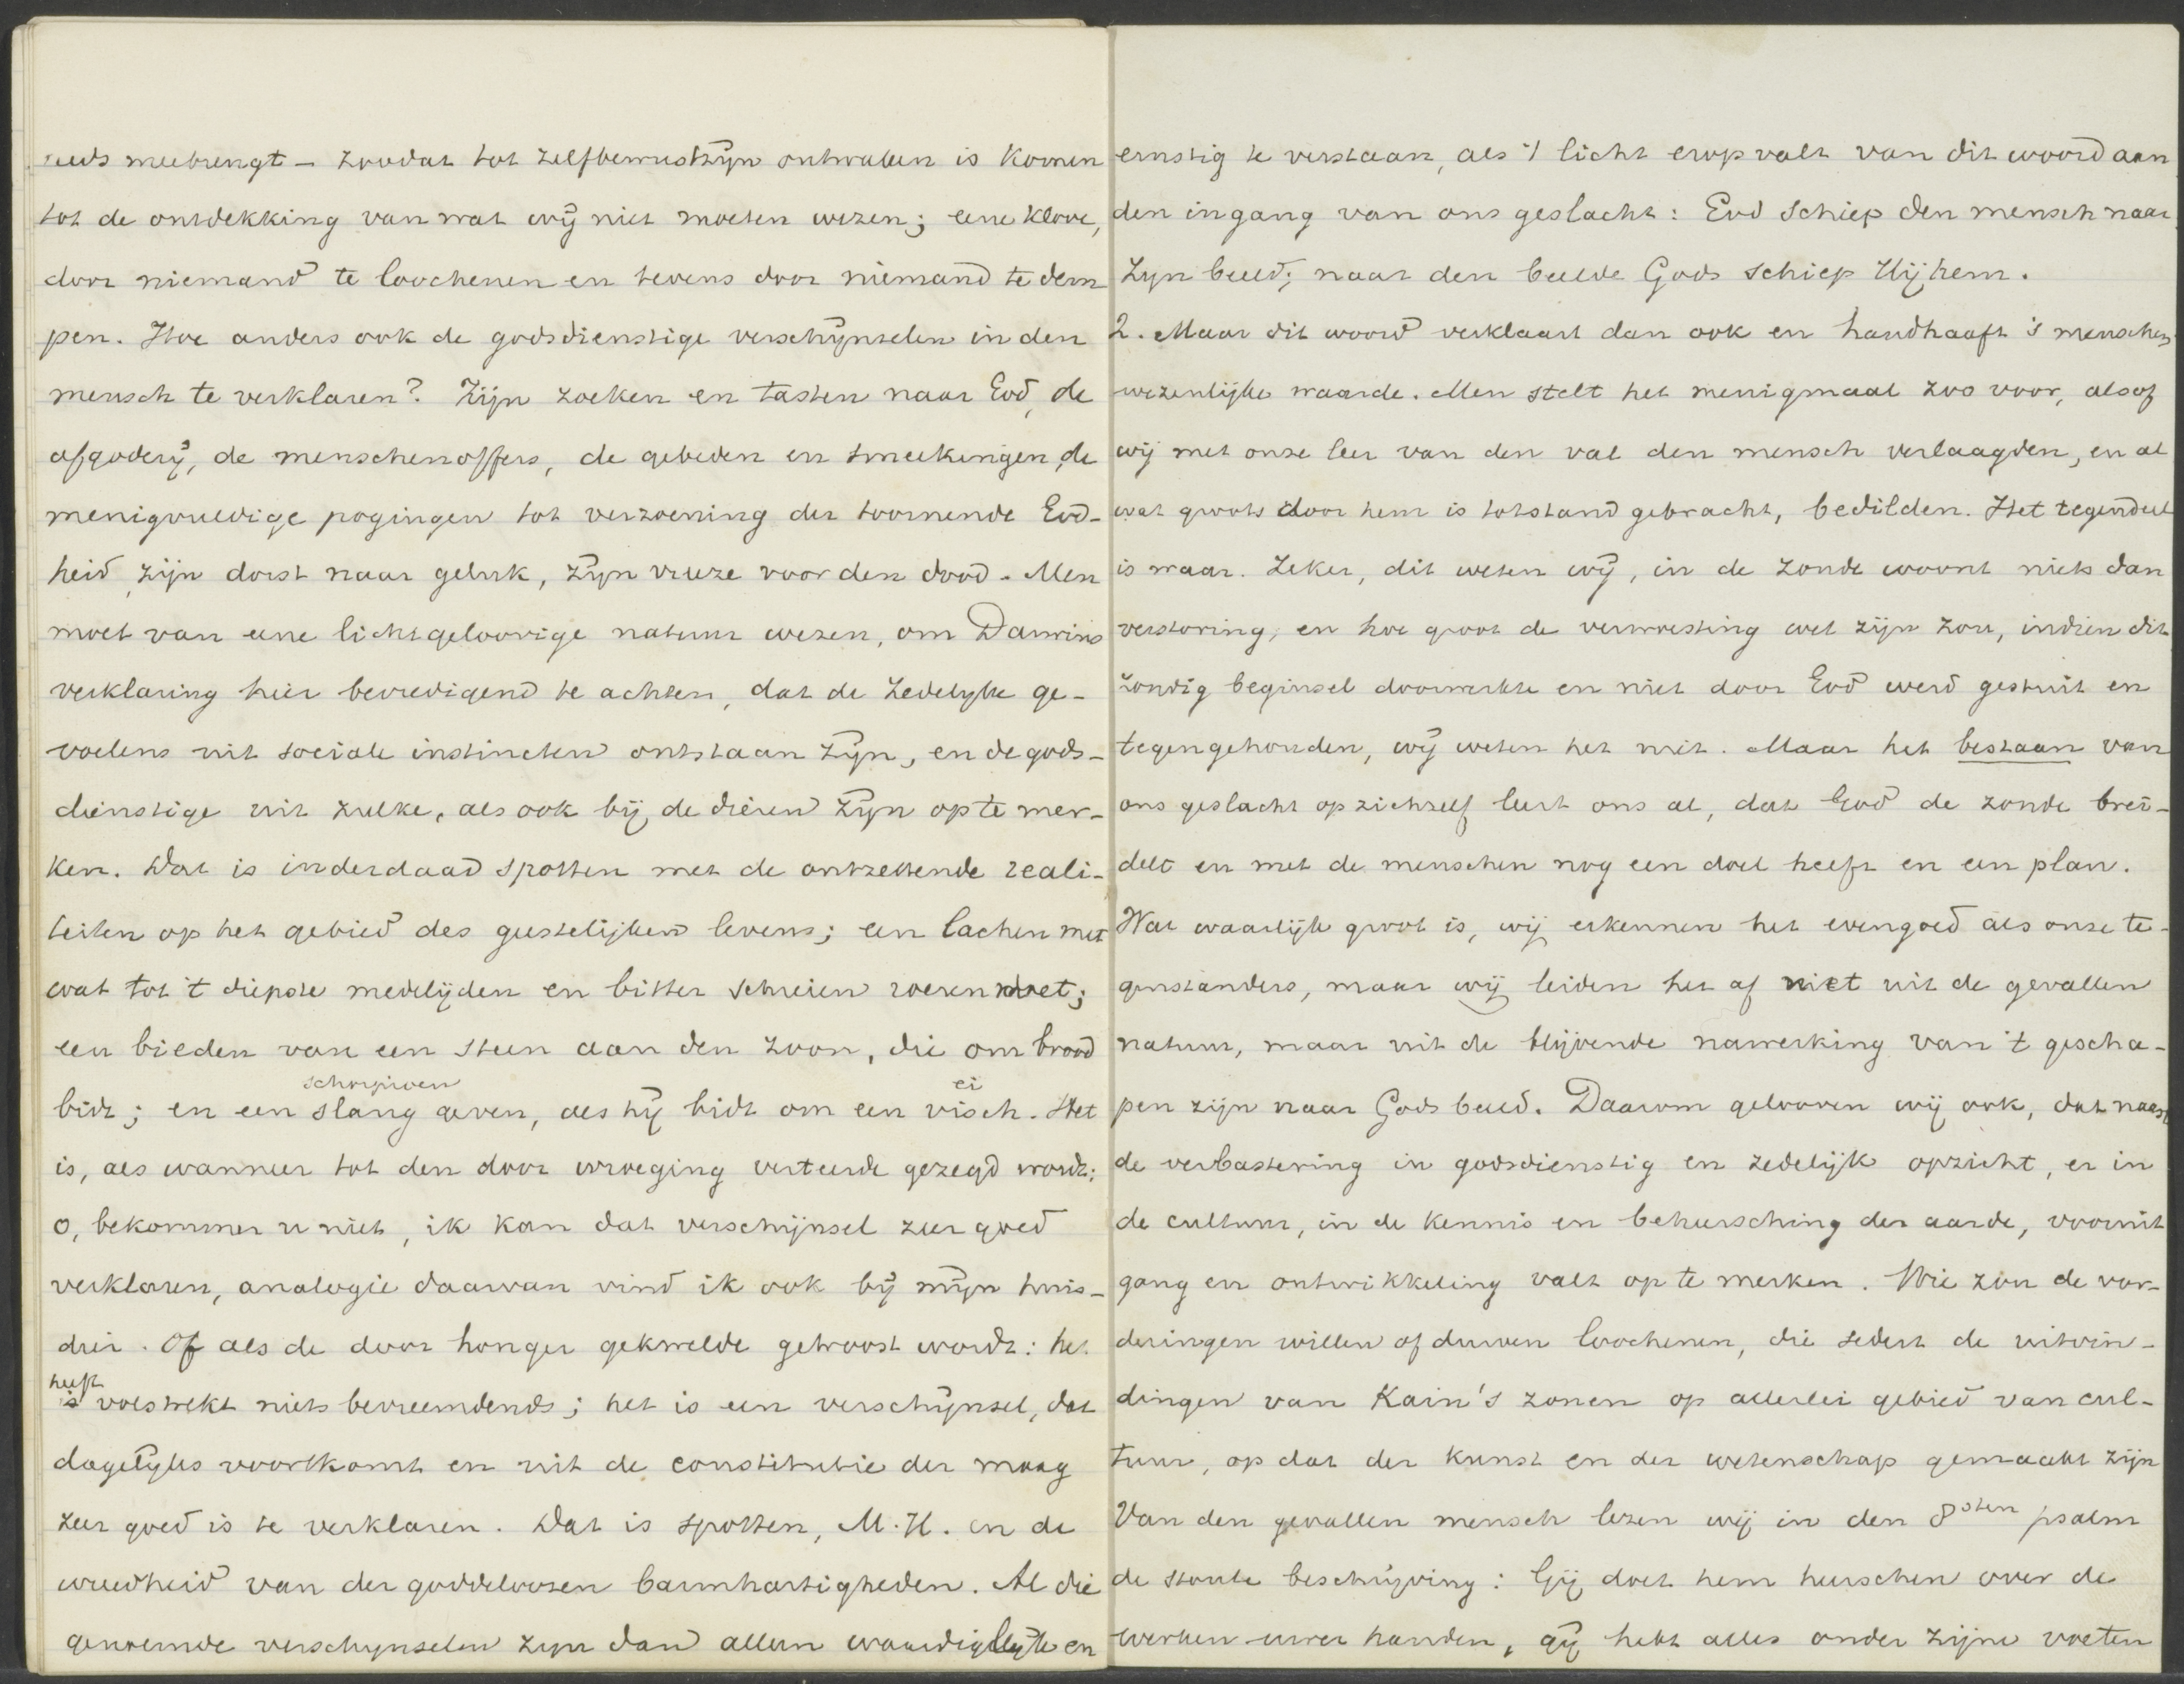 meebrengt – zoodat tot zelfbewustzijn ontwaken is komen
tot de ontdekking van wat wij niet moeten wezen; eene klove,
door niemand te loochenen en tevens door niemand te dem
pen. Hoe anders ook de godsdienstige verschijnselen in den
mensch te verklaren? Zijn zoeken en tasten naar God, de
afgoderij, de menschenoffers, de gebeden en smeekingen, de
menigvuldige pogingen tot verzoening der toornende God-
heid, zijn dorst naar geluk, zijn vreeze voor den dood. Men
moet van eene lichtgeloovige natuur wezen, om Darwins
verklaring hier bevredigend te achten, dat de zedelijke ge-
voelens uit sociale instincten ontstaan zijn, en de gods-
dienstige uit zulke, als ook bij de dieren zijn op te mer-
ken. Dat is inderdaad spotten met de ontzettende reali-
teiten op het gebied des geestelijken levens; een lachen met
wat tot 't diepste medelijden en bitter schreien roeren moet;
een bieden van een steen aan den zoon, die om brood
schorpioen ei
bidt; en een slang geven, als hij bidt om een visch. Het
is, als wanneer tot den door wroeging verteerde gezegd wordt:
o, bekommer u niet, ik kan dat verschijnsel zeer goed
verklaren, analogie daarvan vind ik ook bij mijn huis-
dier. Of als de door honger gekwelde getroost wordt: het
heeft
is volstrekt niets bevreemdends; het is een verschijnsel, dat
dagelijks voortkomt en uit de constitutie der maag
zeer goed is te verklaren. Dat is spotten, M.H. en de
wreedheid van der goddeloozen barmhartigheden. Al die
genoemde verschijnselen zijn dan alleen waardiglijk en
ernstig te verstaan, als 't licht erop valt van dit woord aan
den ingang van ons geslacht: God schiep den mensch naar
zijn beeld; naar den beelde Gods schiep Hij hem.
2. Maar dit woord verklaart dan ook en handhaaft 's menschen
wezenlijke waarde. Men stelt het menigmaal zoo voor, alsof
wij met onze leer van den val den mensch verlaagden, en al
wat groots door hem is totstand gebracht, bedilden. Het tegendeel
is waar. Zeker, dit weten wij, in de zonde woont niets dan
verstoring, en hoe groot de verwoesting wel zijn zou, indien dit
zondig beginsel doorwerkte en niet door God werd gestuit en
tegengehouden, wij weten het niet. Maar het bestaan van
ons geslacht op zichzelf leert ons al, dat God de zonde brei-
delt en met de menschen nog een doel heeft en een plan.
Wat waarlijk groot is, wij erkennen het evengoed als onze te-
genstanders, maar wij leiden het af niet uit de gevallen
natuur, maar uit de blijvende nawerking van 't gescha-
pen zijn naar Gods beeld. Daarom gelooven wij ook, dat naast
de verbastering in godsdienstig en zedelijk opzicht, er in
de cultuur, in de kennis en beheersching der aarde, vooruit
gang en ontwikkeling valt op te merken. Wie zou de vor-
deringen willen of durven loochenen, die sedert de uitvin-
dingen van Kain's zonen op allerlei gebied van cul-
tuur, op dat der kunst en der wetenschap gemaakt zijn
Van den gevallen mensch lezen wij in den 8sten psalm
de stoute beschrijving: Gij doet hem heerschen over de
werken uwer handen, gij hebt alles onder zijne voeten